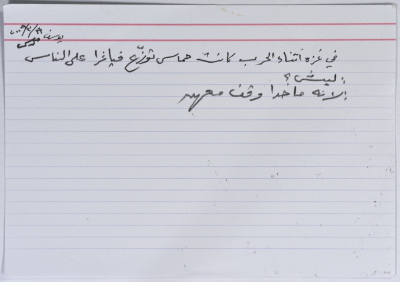 في غزه أثناء الحرب كانت حماس توزّع فياغرا على الناس
: ليش؟
: لانه ماحدا وقف معهم